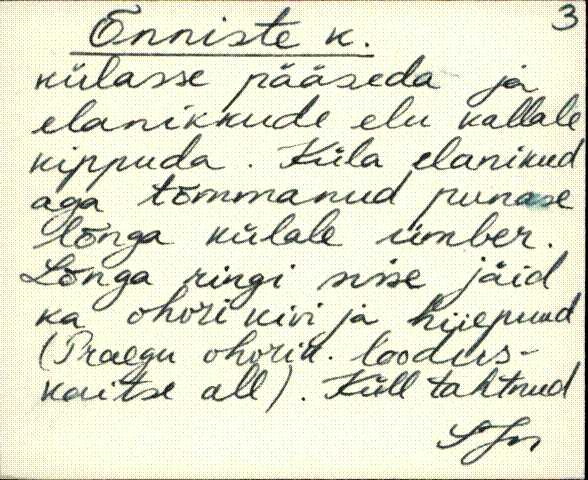 3
Enniste k.
külasse pääseda ja
elanikkude elu kallale
kippuda. Küla elanikud
aga tõmmanud punase
lõnga külale ümber.
Lõnga ringi sisse jäid
ka ohvri kivi ja hiiepuud
(Praegu ohvrik. loodus-
kaitse all). Küll tahtnud